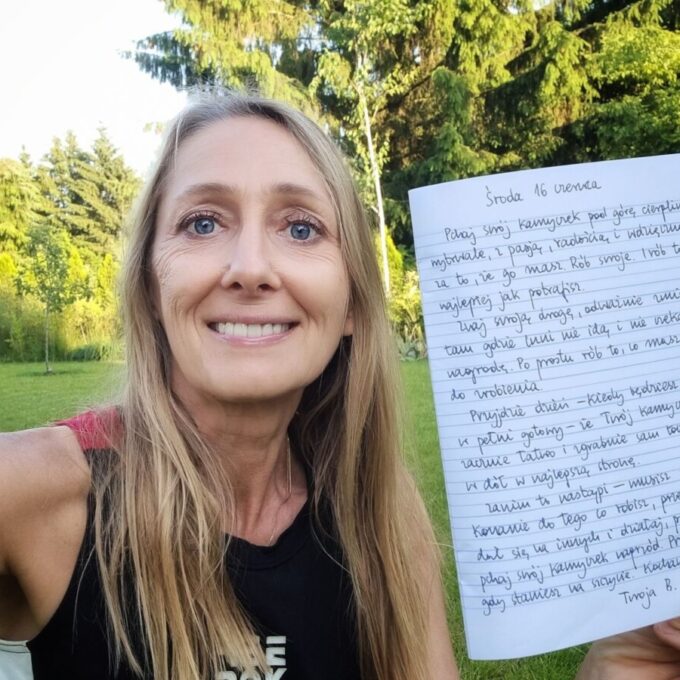 Środa 16 czerwca
Pchaj swój kamyczek pod górę cierpliw
wytrwale, z pasją, radością i wdzięczn
za to, że go masz. Rób swoje. Rób t
najlepiej jak potrafisz.
swoją drogę, odważnie
tam gdzie inni nie idą i nie
nagrodę. Po prostu rób to, co masz
do zrobienia.
Przyjdzie dzień – kiedy będziesz
w pełni gotowy – że Twój kamycz
zacznie łatwo i zgrabnie sam
w dół w najlepszą stronę.
Zanim to nastąpi – musisz
konanie do tego co robisz, prze
się na innych i działaj,
pchaj swój kamyczek naprzód. Pr
gdy staniesz na szczycie.
Twoja B.